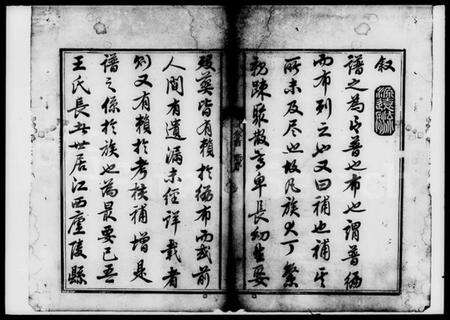 叙
譜之為言普也布也謂普徧
而布列之也又曰補也補其
所未及尽也故凡族人丁繁
親踈聚散尊卑長幼生娶
殁葬皆有賴於徧布而或前
人間有遺漏未經詳載者
則又有賴於考核補增是
譜之係於族也為最要已吾
王氏長房世居江西廬陵縣